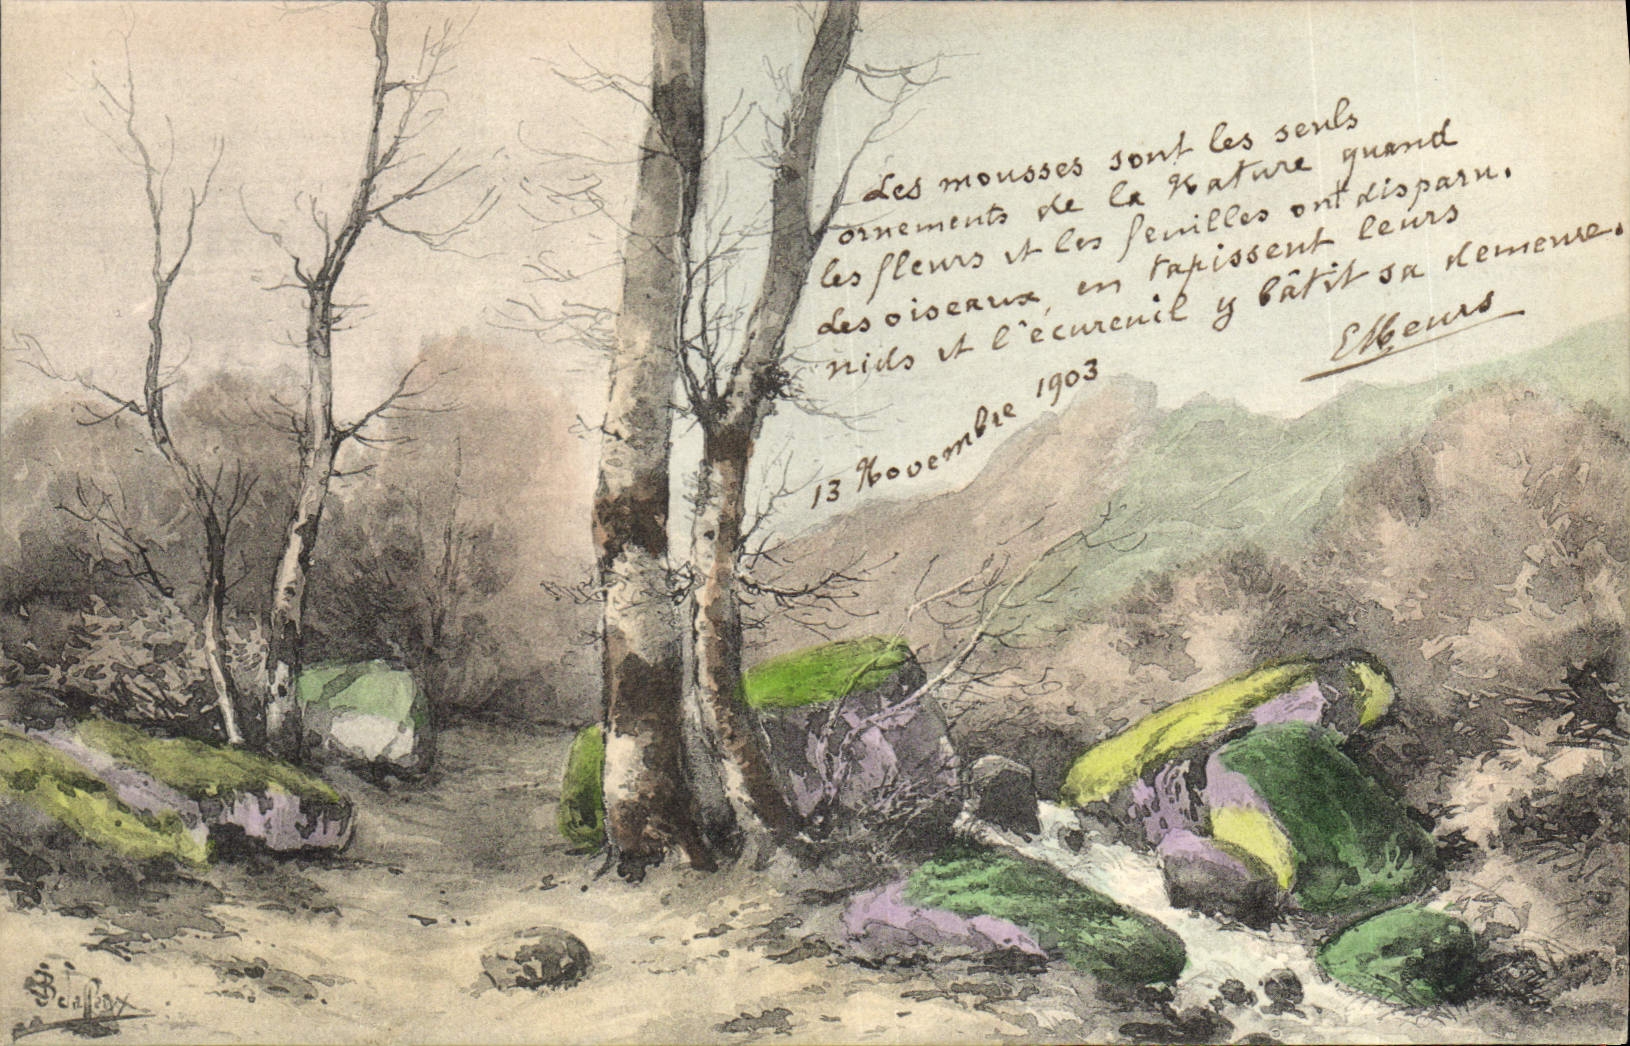 Les mousses sont les seuls
ornements de la Nature quand
les fleurs et les feuilles ont disparu.
Les oiseaux en tapissent leurs
nids et l'écureuil y bâtit sa demeure.
13 Novembre 1903